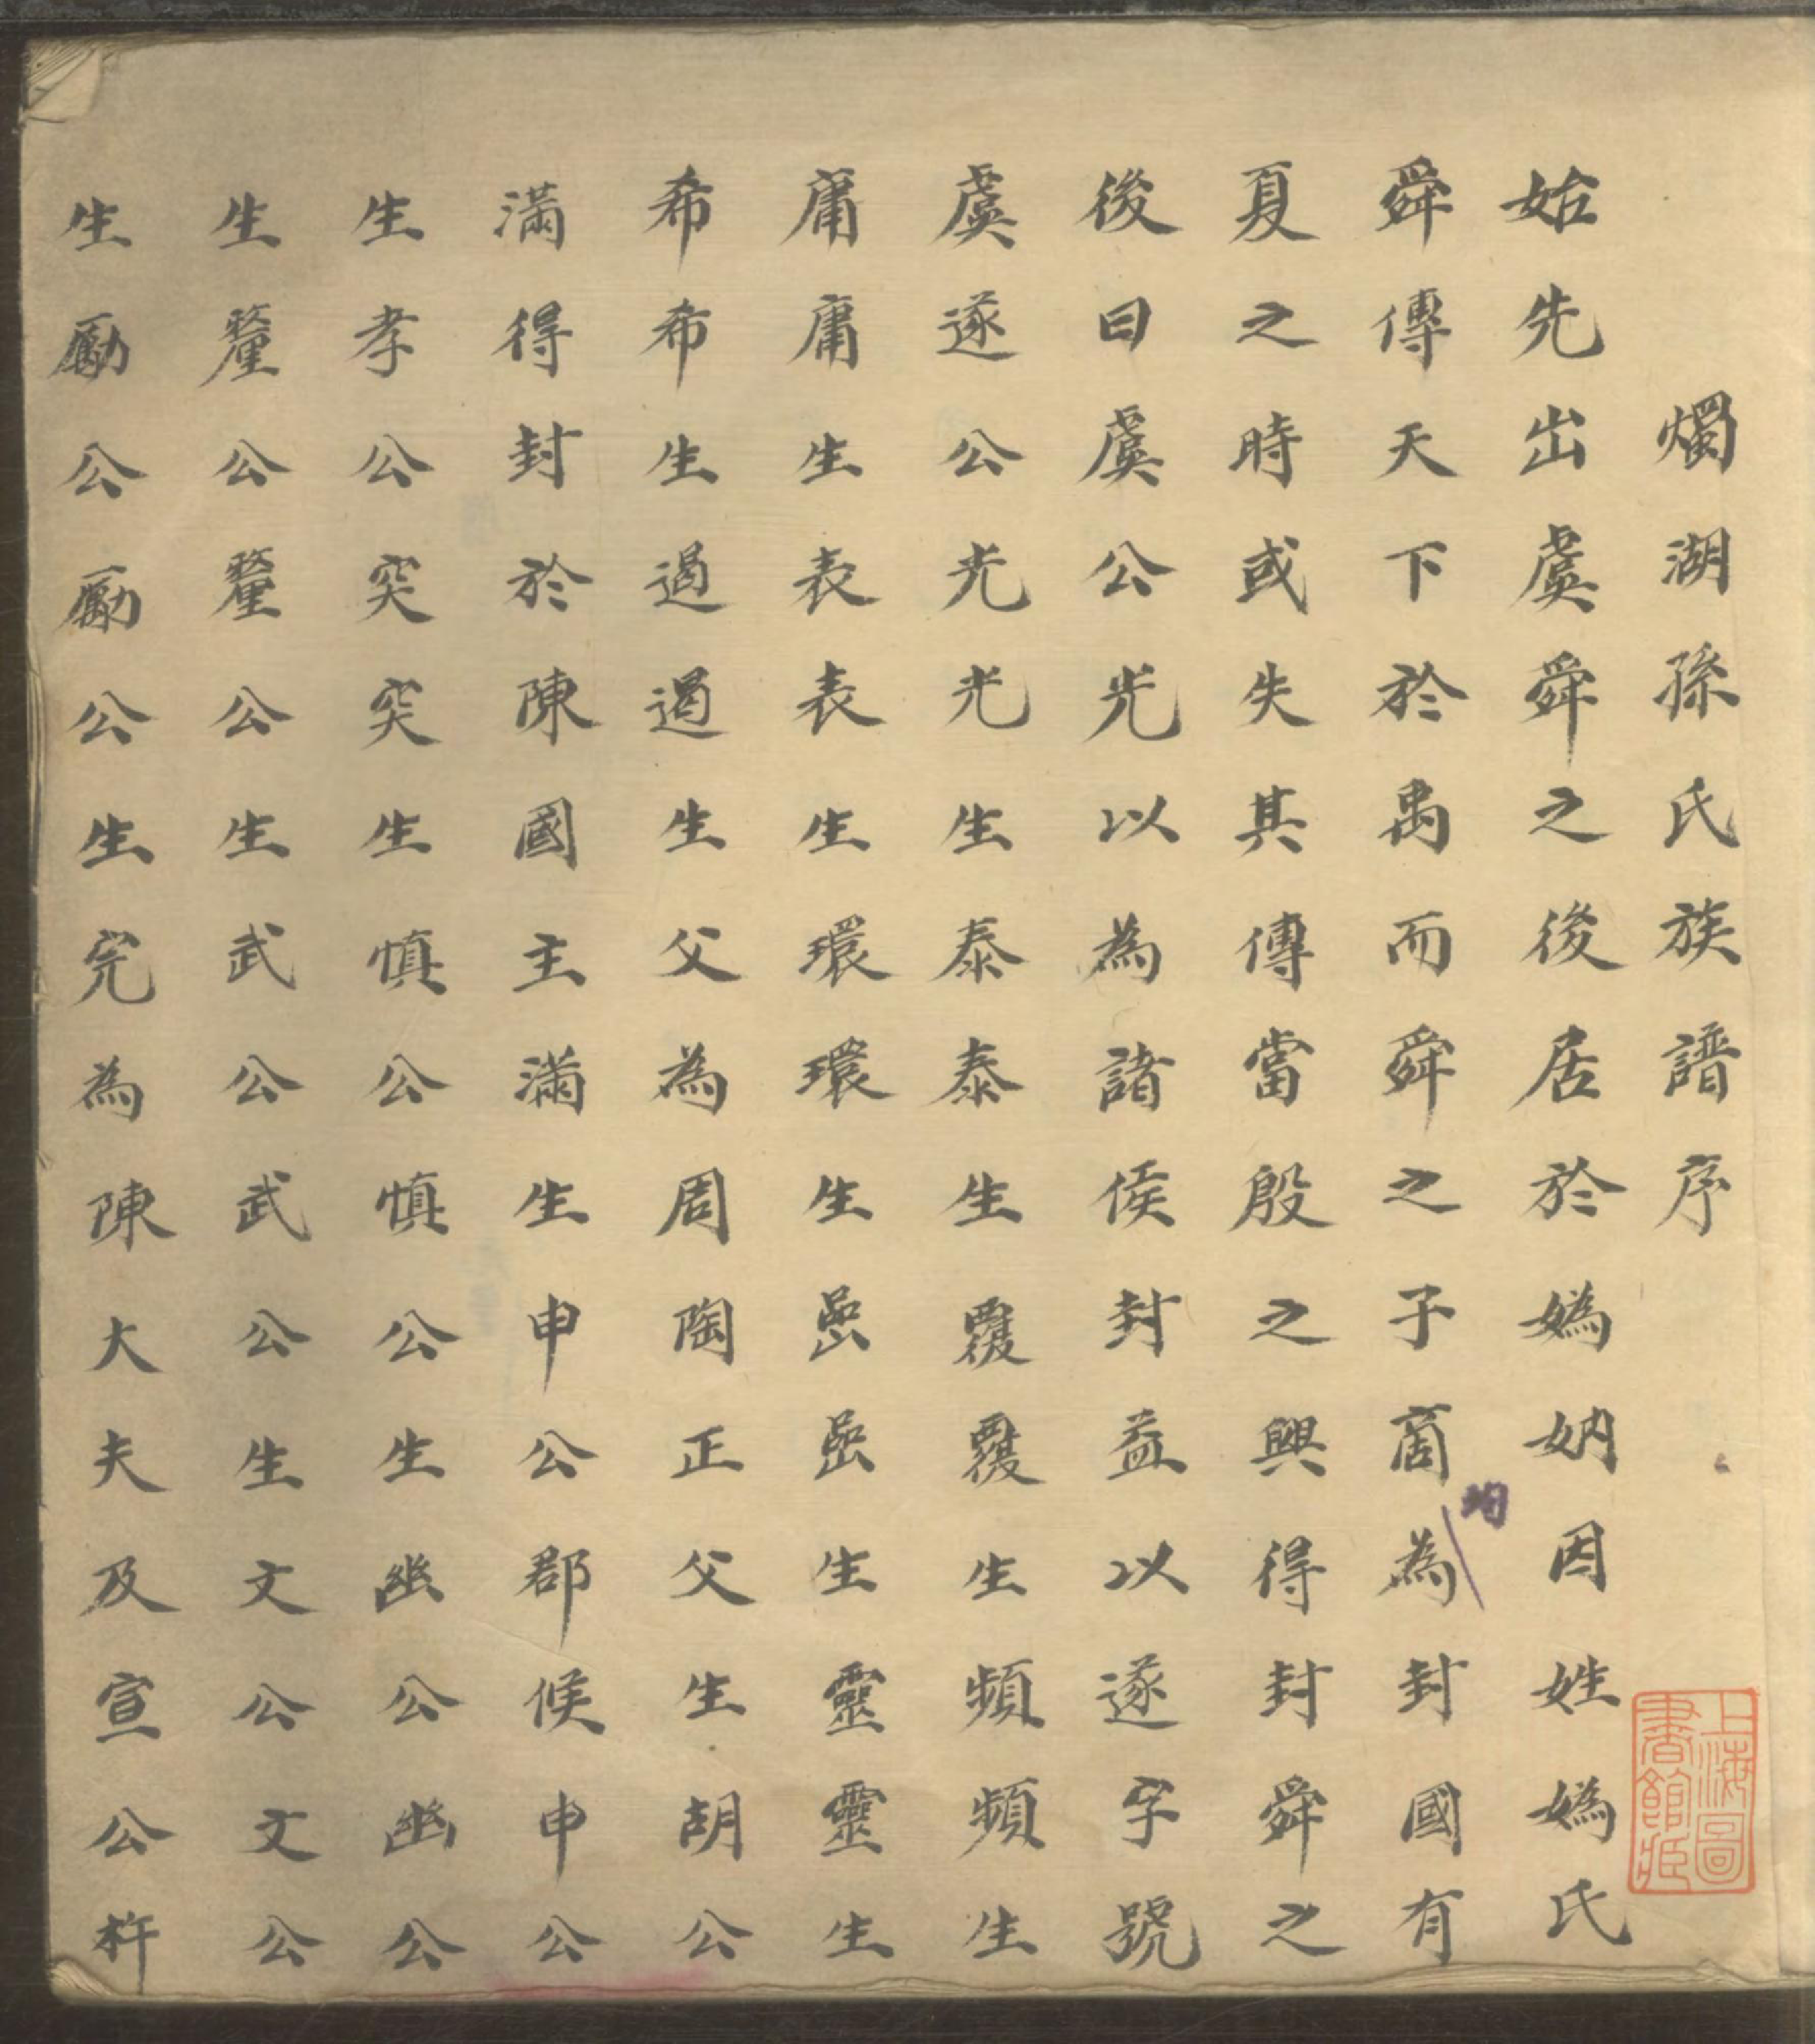 燭湖孫氏族譜序
始先出虞舜之後居於媯妠因姓媯氏
舜傳天下於禹而舜之子商為封國有
均
夏之時或失其傳當殷之興得封舜之
後曰虞公光以為諸侯封益以遂字號
虞遂公光光生泰泰生覆覆生頻頻生
庸庸生表表生環環生喦喦生靈靈生
希希生遏遏生父為周陶正父生胡公
滿得封於陳國主滿生申公郡候申公
生孝公突突生慎公慎公生幽公幽公
生釐公釐公生武公武公生文公文公
生勵公勵公生完為陳大夫及宣公杵
上海圖書館藏